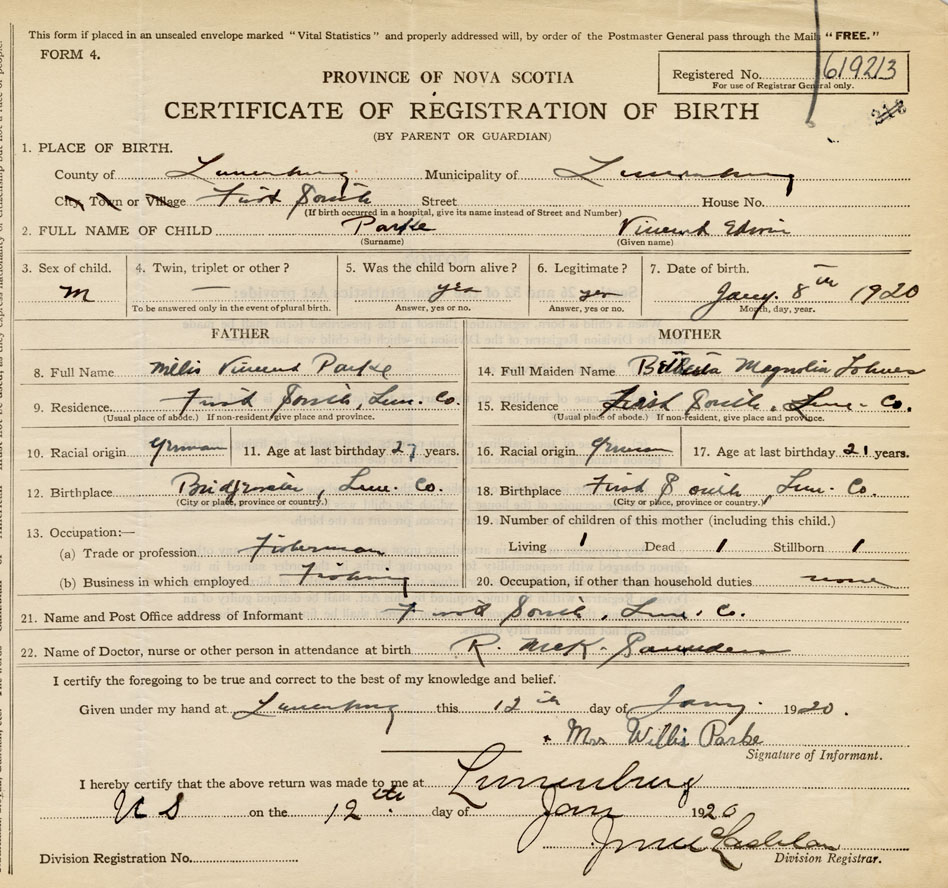 This form if placed in an unsealed envelope marked "Vital Statistics" and properly addressed will, by order of the Postmaster General pass through the Mails "FREE."
FORM 4.
Registered No. 619213
For use of Registrar General only.
PROVINCE OF NOVA SCOTIA
CERTIFICATE OF REGISTRATION OF BIRTH
(BY PARENT OR GUARDIAN)
1. PLACE OF BIRTH.
County of Lunenburg Municipality of Lunenburg
City, Town or Village First South Street House No.
(If birth occurred in a hospital, give its name instead of Street and Number)
2. FULL NAME OF CHILD Parke Vincent Edwin
(Surname) (Given name)
3. Sex of child. 4. Twin, triplet or other? 5. Was the child born alive? 6. Legitimate? 7. Date of birth.
M — yes yes Jany. 8th 1920
To be answered only in the event of plural birth. Answer, yes or no. Answer, yes or no. Month, day, year.
FATHER MOTHER
8. Full Name Vincent Parke 14. Full Maiden Name Magnolia
9. Residence First South, Lun. Co. 15. Residence First South, Lun. Co.
(Usual place of abode.) If non-resident, give place and province. (Usual place of abode.) If non-resident, give place and province.
10. Racial origin German 11. Age at last birthday 27 years. 16. Racial origin German 17. Age at last birthday 21 years.
12. Birthplace Bridgewater, Lun. Co. 18. Birthplace First South, Lun. Co.
(City or place, province or country.) (City or place, province or country.)
13. Occupation:— 19. Number of children of this mother (including this child.)
(a) Trade or profession Fisherman Living 1 Dead 1 Stillborn 1
(b) Business in which employed Fishing 20. Occupation, if other than household duties. none
21. Name and Post Office address of Informant First South, Lun. Co.
22. Name of Doctor, nurse or other person in attendance at birth R. McK. Saunders
I certify the foregoing to be true and correct to the best of my knowledge and belief.
Given under my hand at Lunenburg this 12th day of Jany. 1920.
Mrs Willis Parke
Signature of Informant.
I hereby certify that the above return was made to me at Lunenburg
N S on the 12th day of Jan 1920
Division Registration No. Division Registrar.